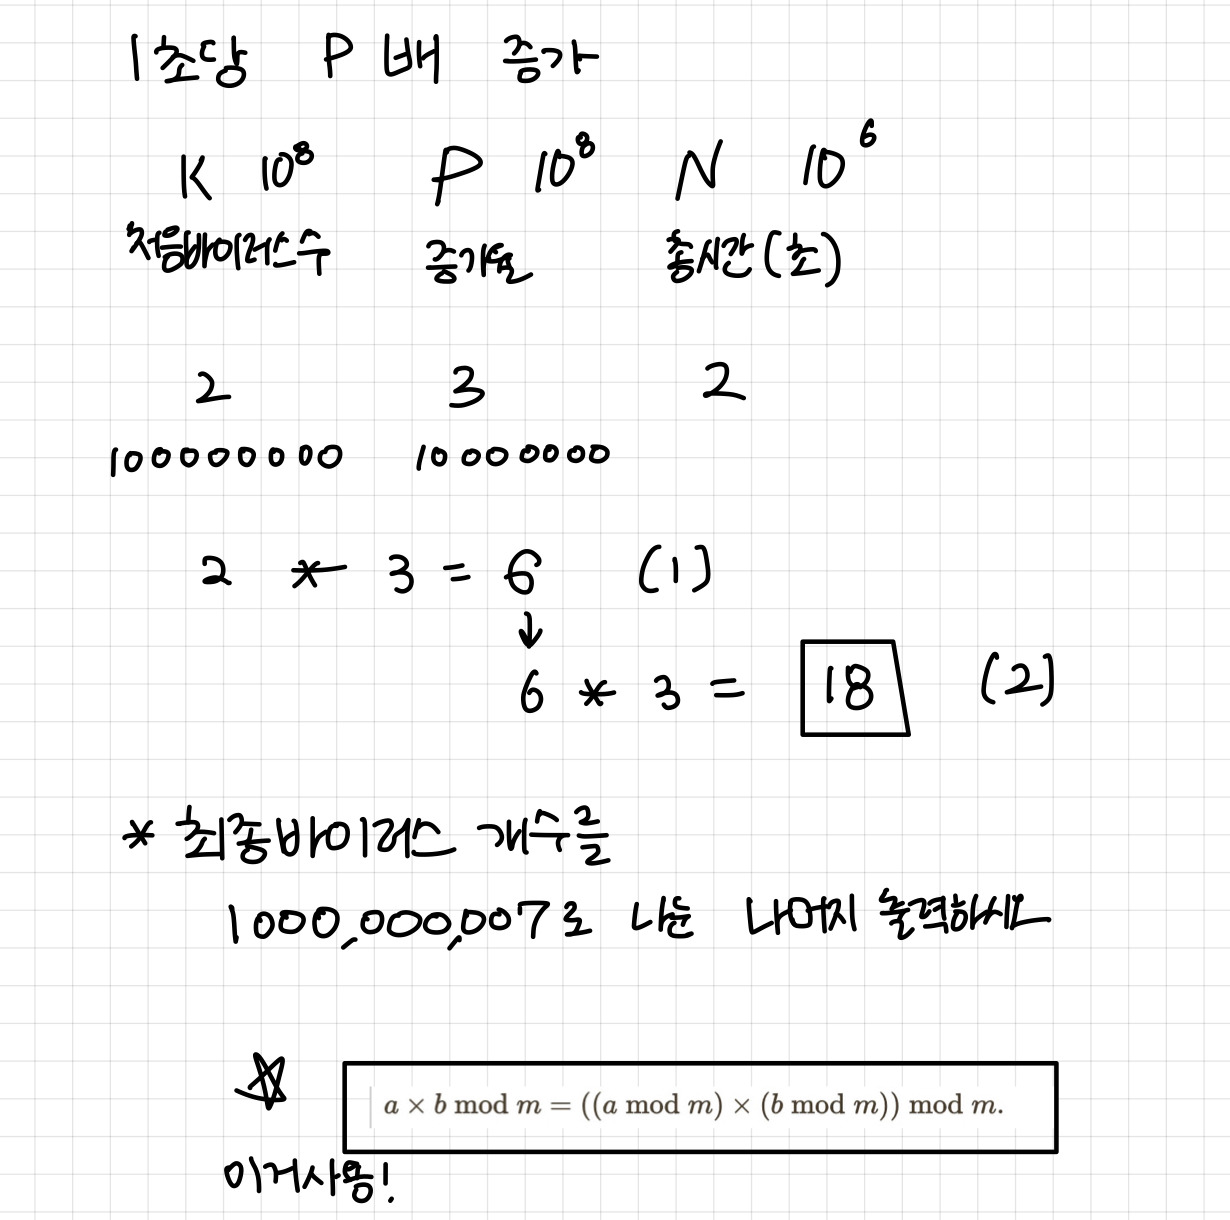 1초당 P배 증가
K 10⁸ P 10⁸ N 10⁶
처음바이러스수 증가율 총시간(초)
2 3 2
100000000 10000000
2 * 3 = 6 (1)
↓
6 * 3 = 18 (2)
* 최종바이러스 개수를
1000,000,007로 나눈 나머지 출력하시오
☆ a × b mod m = ((a mod m) × (b mod m)) mod m.
이거사용!